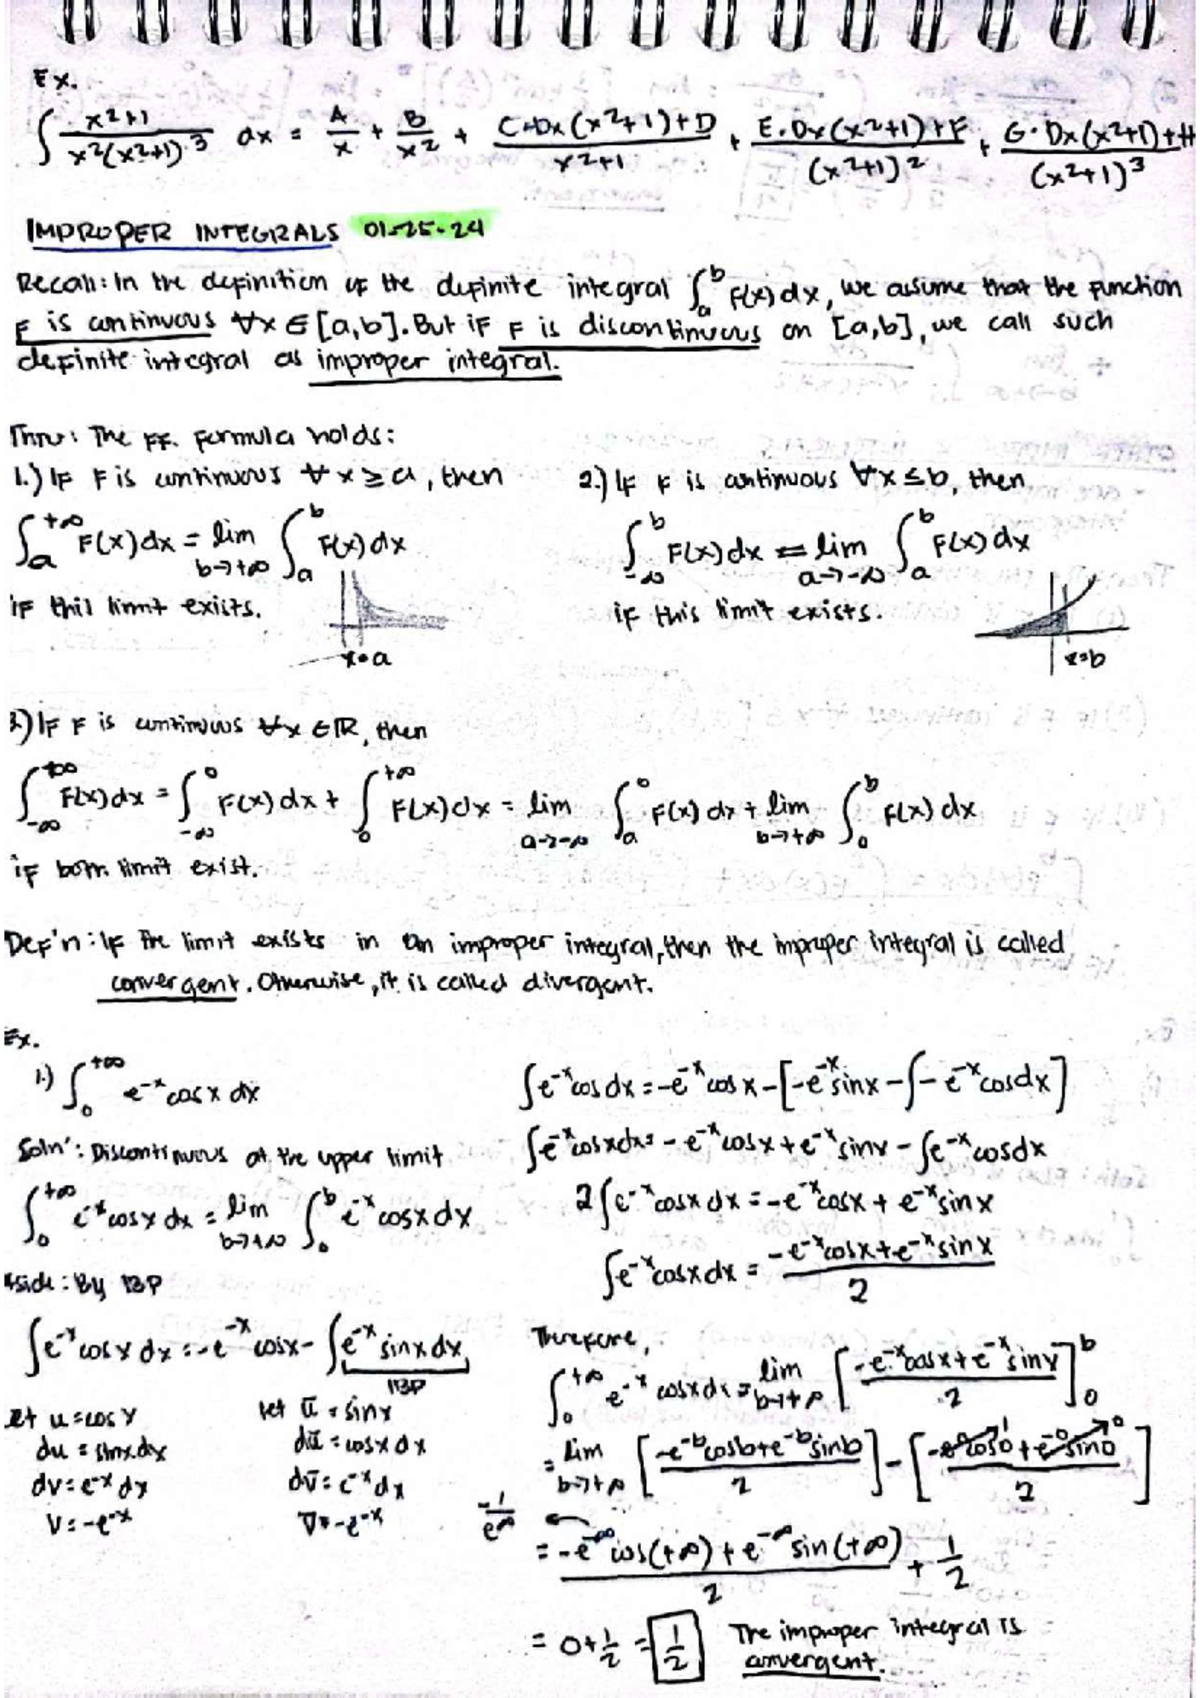 Ex.
∫ x²+1 / x²(x²+1)³ dx = A/x + B/x² + C·Dx(x²+1)+D / x²+1 + E·Dx(x²+1)+F / (x²+1)² + G·Dx(x²+1)+H / (x²+1)³
IMPROPER INTEGRALS 01-25-24
Recall: In the definition of the definite integral ∫_a^b F(x)dx, we assume that the function
F is continuous ∀x∈[a,b]. But if F is discontinuous on [a,b], we call such
definite integral as improper integral.
Thm: The ff. formula holds:
1.) If F is continuous ∀x≥a, then
∫_a^{+∞} F(x)dx = lim_{b→+∞} ∫_a^b F(x)dx
if this limit exists.
x=a
2.) If F is continuous ∀x≤b, then
∫_{-∞}^b F(x)dx = lim_{a→-∞} ∫_a^b F(x)dx
if this limit exists.
x=b
3.) If F is continuous ∀x∈ℝ, then
∫_{-∞}^{+∞} F(x)dx = ∫_{-∞}^0 F(x)dx + ∫_0^{+∞} F(x)dx = lim_{a→-∞} ∫_a^0 F(x)dx + lim_{b→+∞} ∫_0^b F(x)dx
if both limit exist.
Def'n: If the limit exists in an improper integral, then the improper integral is called
convergent. Otherwise, it is called divergent.
Ex.
1.) ∫_0^{+∞} e^{-x} cosx dx
Soln': Discontinuous at the upper limit
∫_0^{+∞} e^{-x} cosx dx = lim_{b→+∞} ∫_0^b e^{-x} cosx dx
Aside: By IBP
∫e^{-x} cosx dx = -e^{-x} cosx - ∫e^{-x} sinx dx
IBP
let u = cosx
du = sinx dx
dv = e^{-x} dx
v = -e^{-x}
let ū = sinx
dū = cosx dx
dv̄ = e^{-x} dx
v̄ = -e^{-x}
∫e^{-x} cos dx = -e^{-x} cosx - [-e^{-x} sinx - ∫-e^{-x} cosdx]
∫e^{-x} cosxdx = -e^{-x} cosx + e^{-x} sinx - ∫e^{-x} cosdx
2∫e^{-x} cosx dx = -e^{-x} cosx + e^{-x} sinx
∫e^{-x} cosx dx = -e^{-x} cosx + e^{-x} sinx / 2
Therefore,
∫_0^{+∞} e^{-x} cosxdx = lim_{b→+∞} [-e^{-x} cosx + e^{-x} sinx / 2]_0^b
= lim_{b→+∞} [-e^{-b} cosb + e^{-b} sinb / 2] - [-e^{-0} cos0 + e^{-0} sin0 / 2] 1 0
-1/e^∞
= -e^{-∞} cos(+∞) + e^{-∞} sin(+∞) / 2 + 1/2
= 0 + 1/2 = 1/2 The improper integral is
convergent.